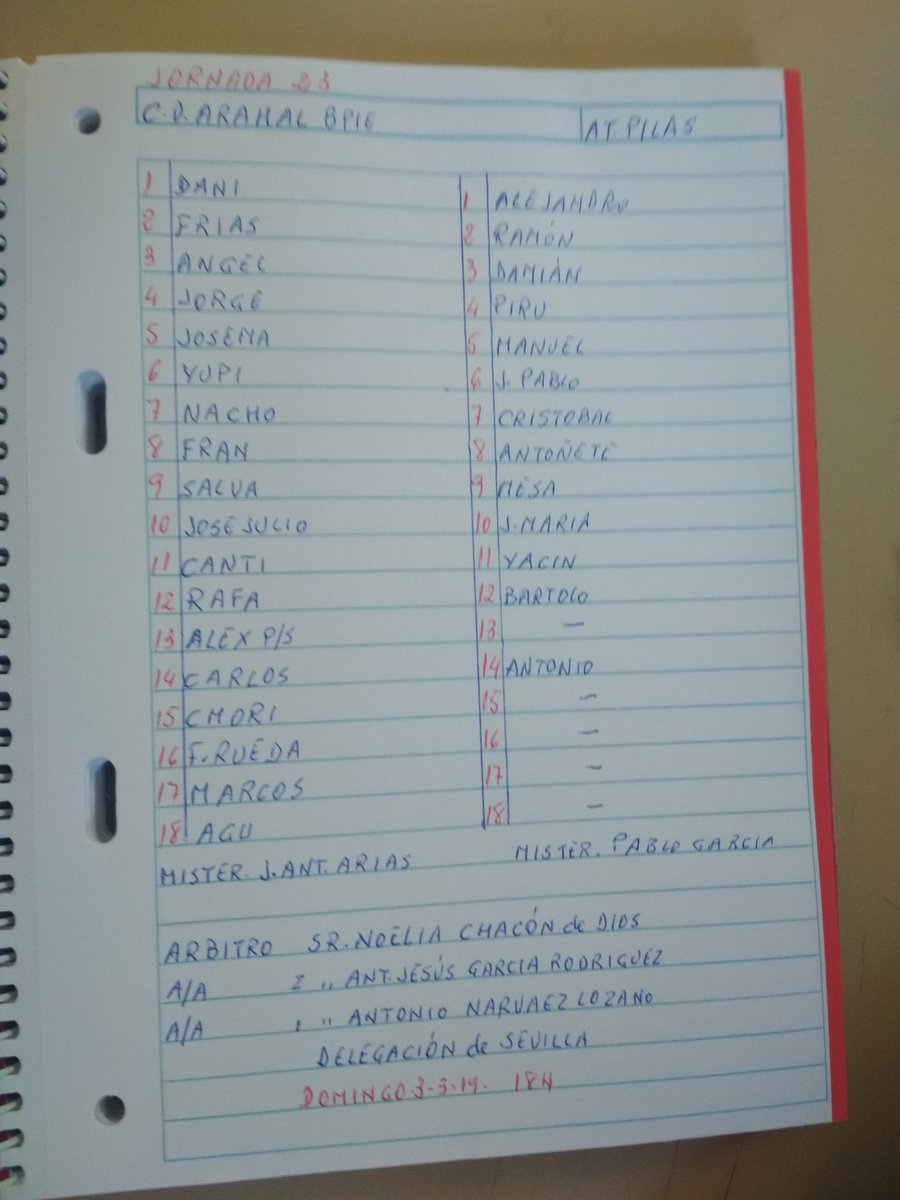 JORNADA 23
C.D. ARAHAL BPIE AT. PILAS
1 DANI 1 ALEJANDRO
2 FRIAS 2 RAMÓN
3 ANGEL 3 DAMIÁN
4 JORGE 4 PIRU
5 JOSEMA 5 MANUEL
6 YUPI 6 J. PABLO
7 NACHO 7 CRISTOBAL
8 FRAN 8 ANTOÑETE
9 SALVA 9 MESA
10 JOSE JULIO 10 J. MARIA
11 CANTI 11 YACIN
12 RAFA 12 BARTOLO
13 ALEX P/S 13 -
14 CARLOS 14 ANTONIO
15 CHORI 15 -
16 F. RUEDA 16 -
17 MARCOS 17 -
18 AGU 18 -
MISTER. J. ANT. ARIAS MISTER. PABLO GARCIA
ARBITRO SR. NOELIA CHACÓN de DIOS
A/A " ANT. JESÚS GARCIA RODRIGUEZ
A/A " ANTONIO NARVAEZ LOZANO
DELEGACIÓN de SEVILLA
DOMINGO 3-3-19. 18H